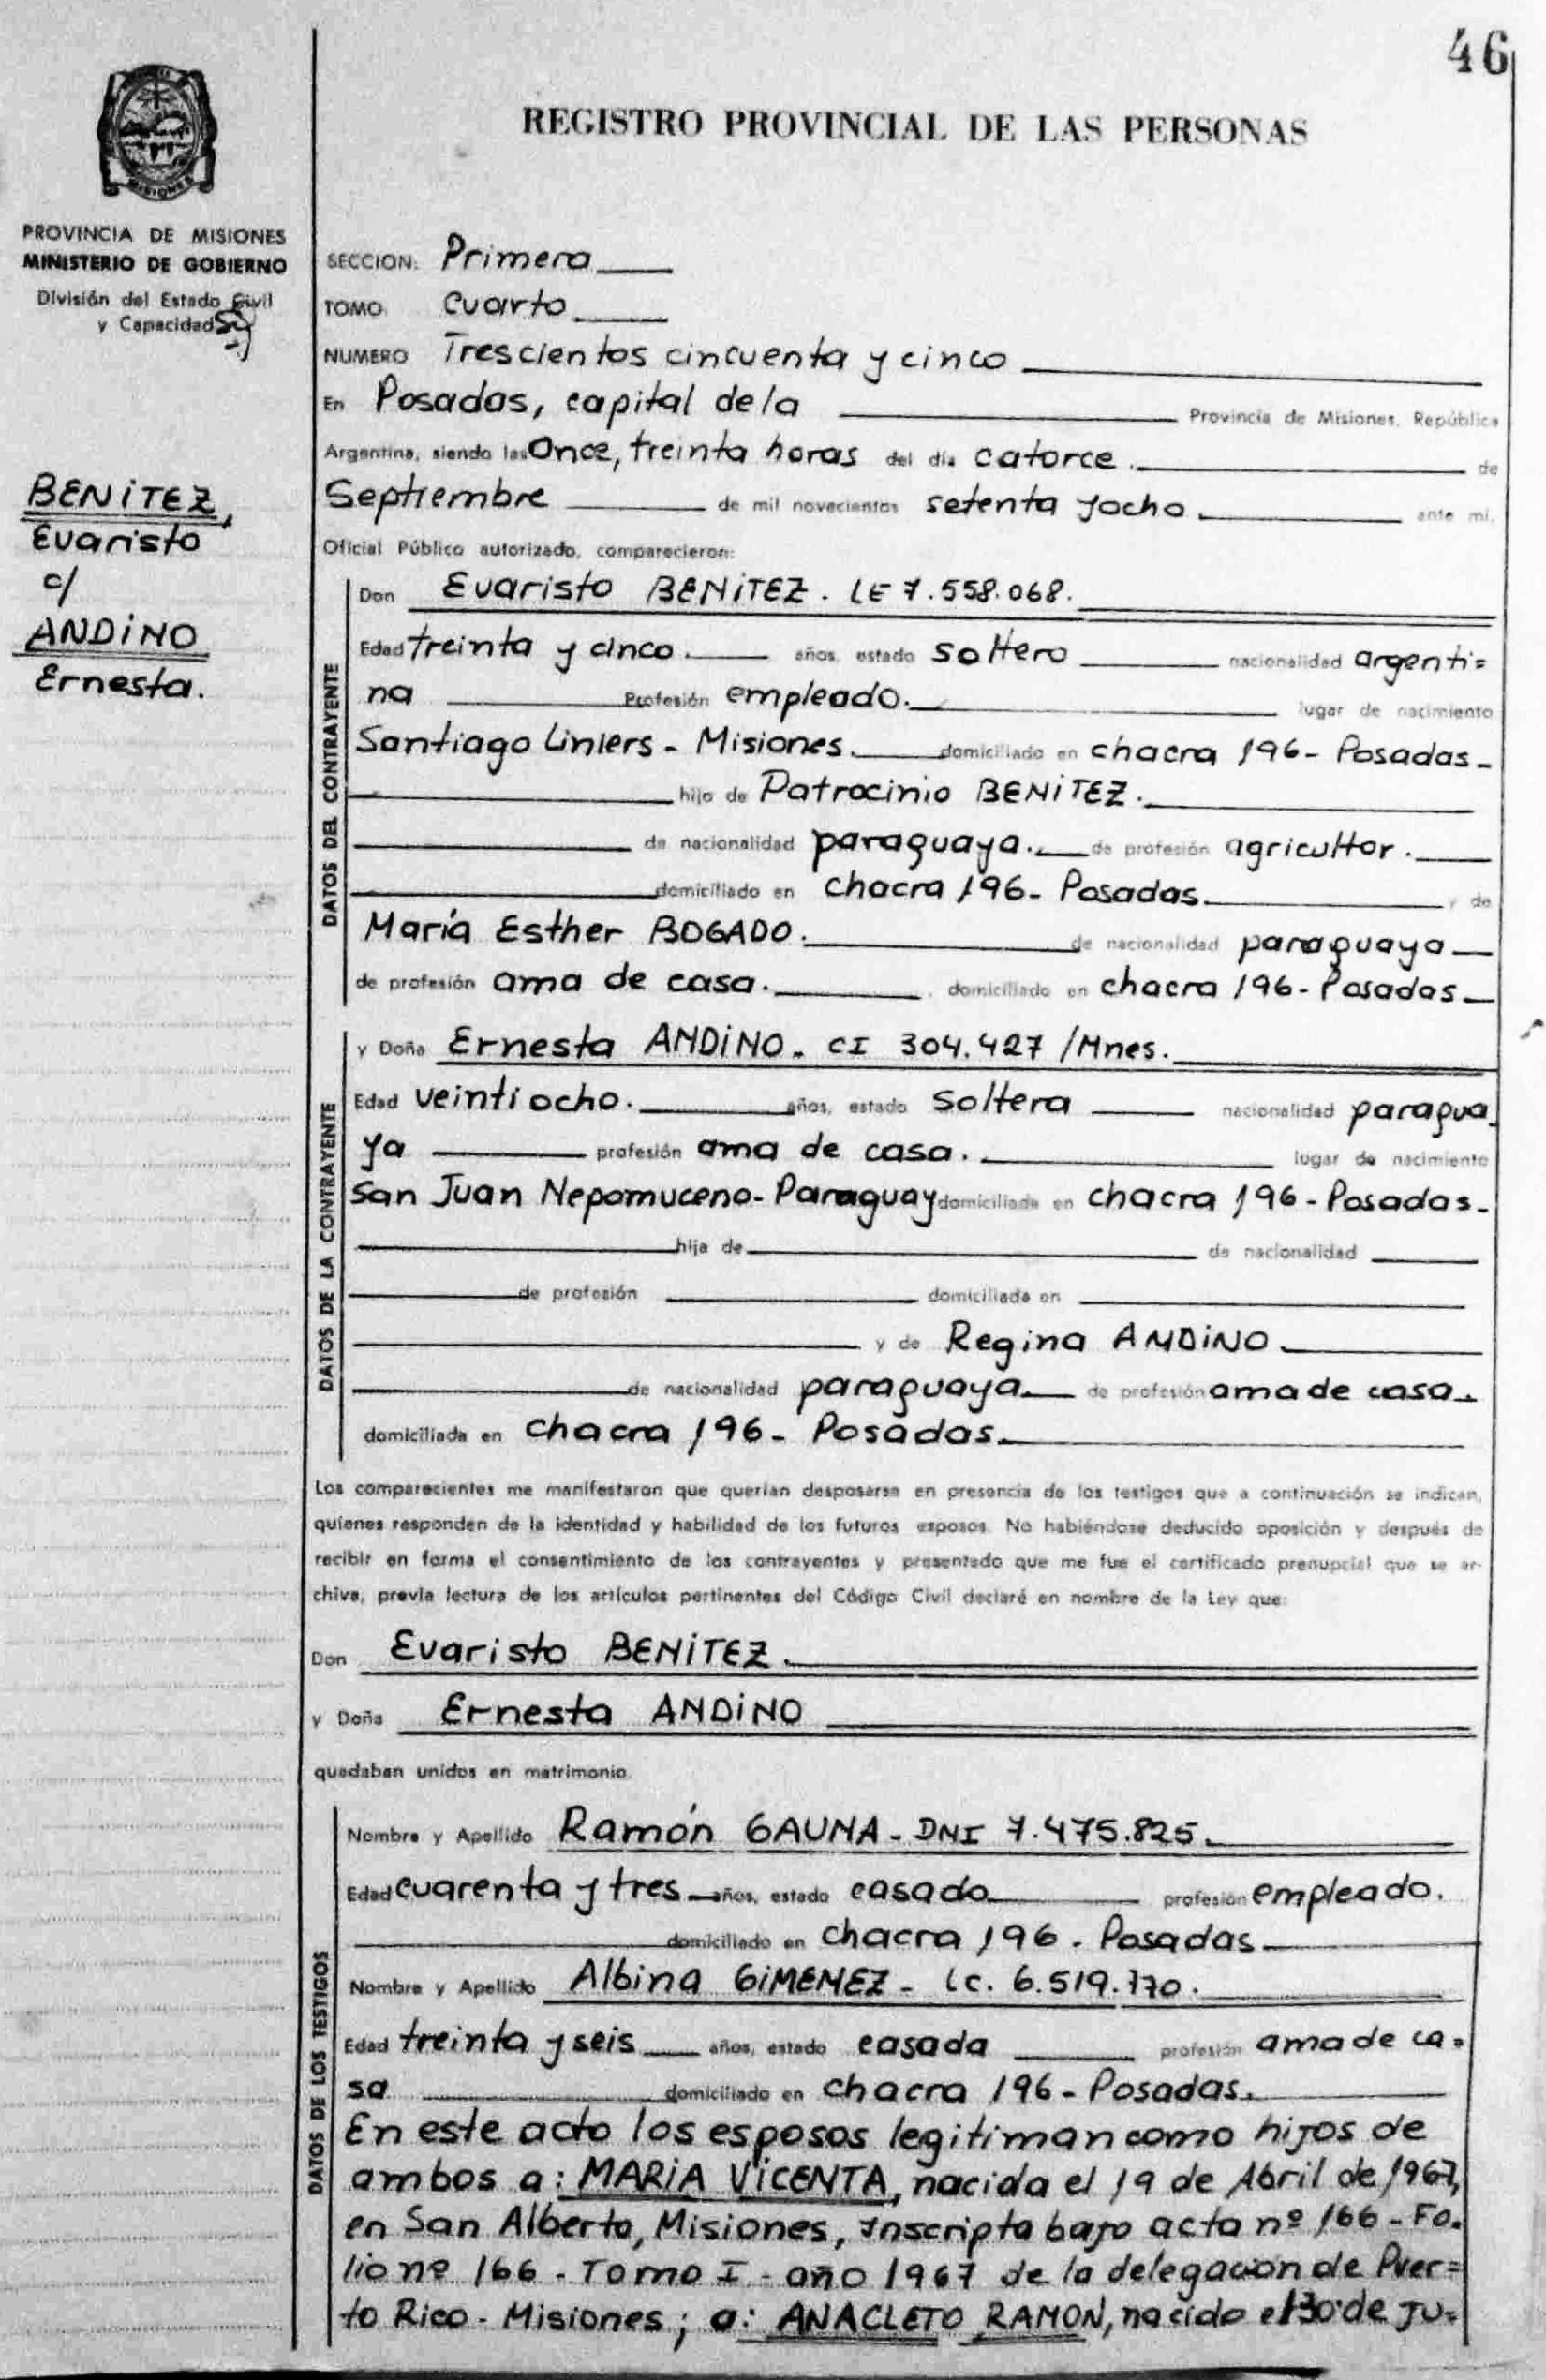 46
REGISTRO PROVINCIAL DE LAS PERSONAS
MISIONES
PROVINCIA DE MISIONES
MINISTERIO DE GOBIERNO
División del Estado Civil
y Capacidad
BENITEZ,
Evaristo
c/
ANDINO
Ernesta.
SECCION: Primera
TOMO: Cuarto
NUMERO Trescientos cincuenta y cinco
En Posadas, capital de la Provincia de Misiones, República
Argentina, siendo las Once, treinta horas del día catorce. de
Septiembre de mil novecientos setenta y ocho ante mí,
Oficial Público autorizado, comparecieron:
DATOS DEL CONTRAYENTE
Don Evaristo BENITEZ. LE 7.558.068.
Edad treinta y cinco. años, estado soltero nacionalidad argenti=
na Profesión empleado. lugar de nacimiento
Santiago Liniers - Misiones. domiciliado en chacra 196 - Posadas -
hijo de Patrocinio BENITEZ.
de nacionalidad paraguaya. de profesión agricultor.
domiciliado en chacra 196 - Posadas. y de
María Esther BOGADO. de nacionalidad paraguaya
de profesión ama de casa. domiciliado en chacra 196 - Posadas
DATOS DE LA CONTRAYENTE
y Doña Ernesta ANDINO - CI 304.427 /Mnes.
Edad veintiocho. años, estado soltera nacionalidad paragua
ya profesión ama de casa. lugar de nacimiento
San Juan Nepomuceno - Paraguay domiciliada en chacra 196 - Posadas -
hija de de nacionalidad
de profesión domiciliado en
y de Regina ANDINO
de nacionalidad paraguaya de profesión ama de casa.
domiciliada en chacra 196 - Posadas.
Los comparecientes me manifestaron que querían desposarse en presencia de los testigos que a continuación se indican,
quienes responden de la identidad y habilidad de los futuros esposos. No habiéndose deducido oposición y después de
recibir en forma el consentimiento de los contrayentes y presentado que me fue el certificado prenupcial que se ar-
chiva, previa lectura de los artículos pertinentes del Código Civil declaré en nombre de la Ley que:
Don Evaristo BENITEZ.
y Doña Ernesta ANDINO
quedaban unidos en matrimonio.
DATOS DE LOS TESTIGOS
Nombre y Apellido Ramón GAUNA - DNI 7.475.825.
Edad cuarenta y tres años, estado casado profesión empleado.
domiciliado en chacra 196 - Posadas
Nombre y Apellido Albina GIMENEZ - LC. 6.519.770.
Edad treinta y seis años, estado casada profesión ama de ca=
sa domiciliado en chacra 196 - Posadas.
En este acto los esposos legitiman como hijos de
ambos a: MARIA VICENTA, nacida el 19 de Abril de 1967,
en San Alberto, Misiones, Inscripta bajo acta nº 166 - Fo=
lio nº 166 - Tomo I - año 1967 de la delegación de Puer=
to Rico - Misiones; a: ANACLETO RAMON, nacido el 30 de Ju=